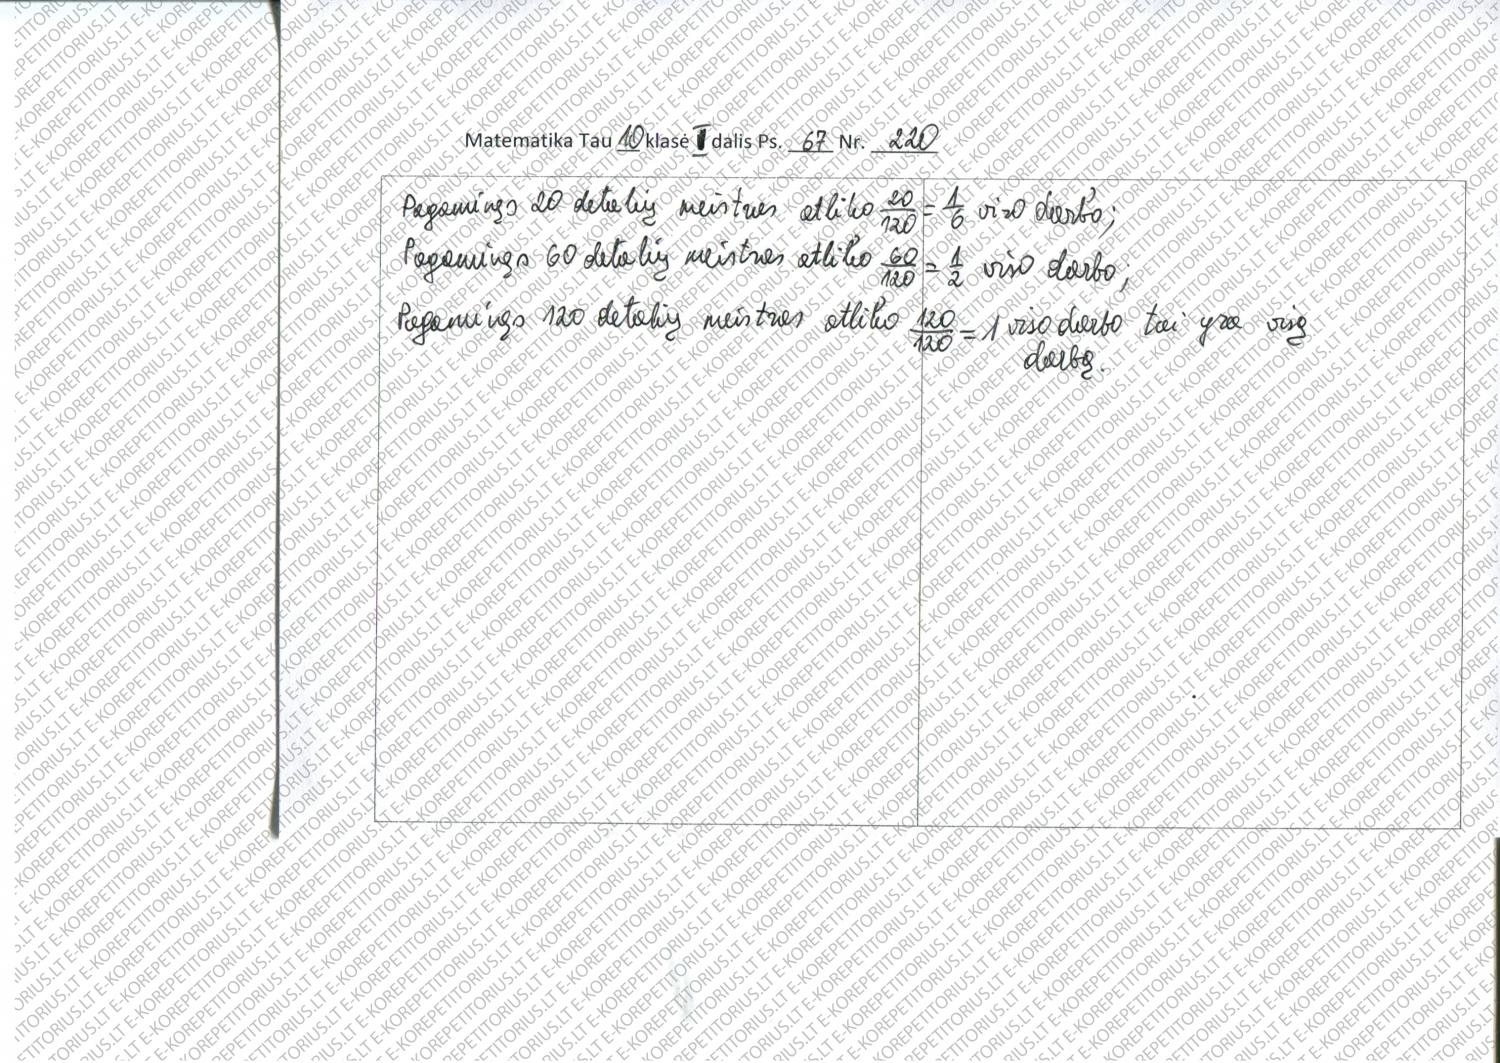 Matematika Tau 10 klasė I dalis Ps. 67 Nr. 220
Pagaminęs 20 detalių meistras atliko 20/120 = 1/6 viso darbo;
Pagaminęs 60 detalių meistras atliko 60/120 = 1/2 viso darbo;
Pagaminęs 120 detalių meistras atliko 120/120 = 1 viso darbo tai yra visą
darbą.
E-KOREPETITORIUS.LT